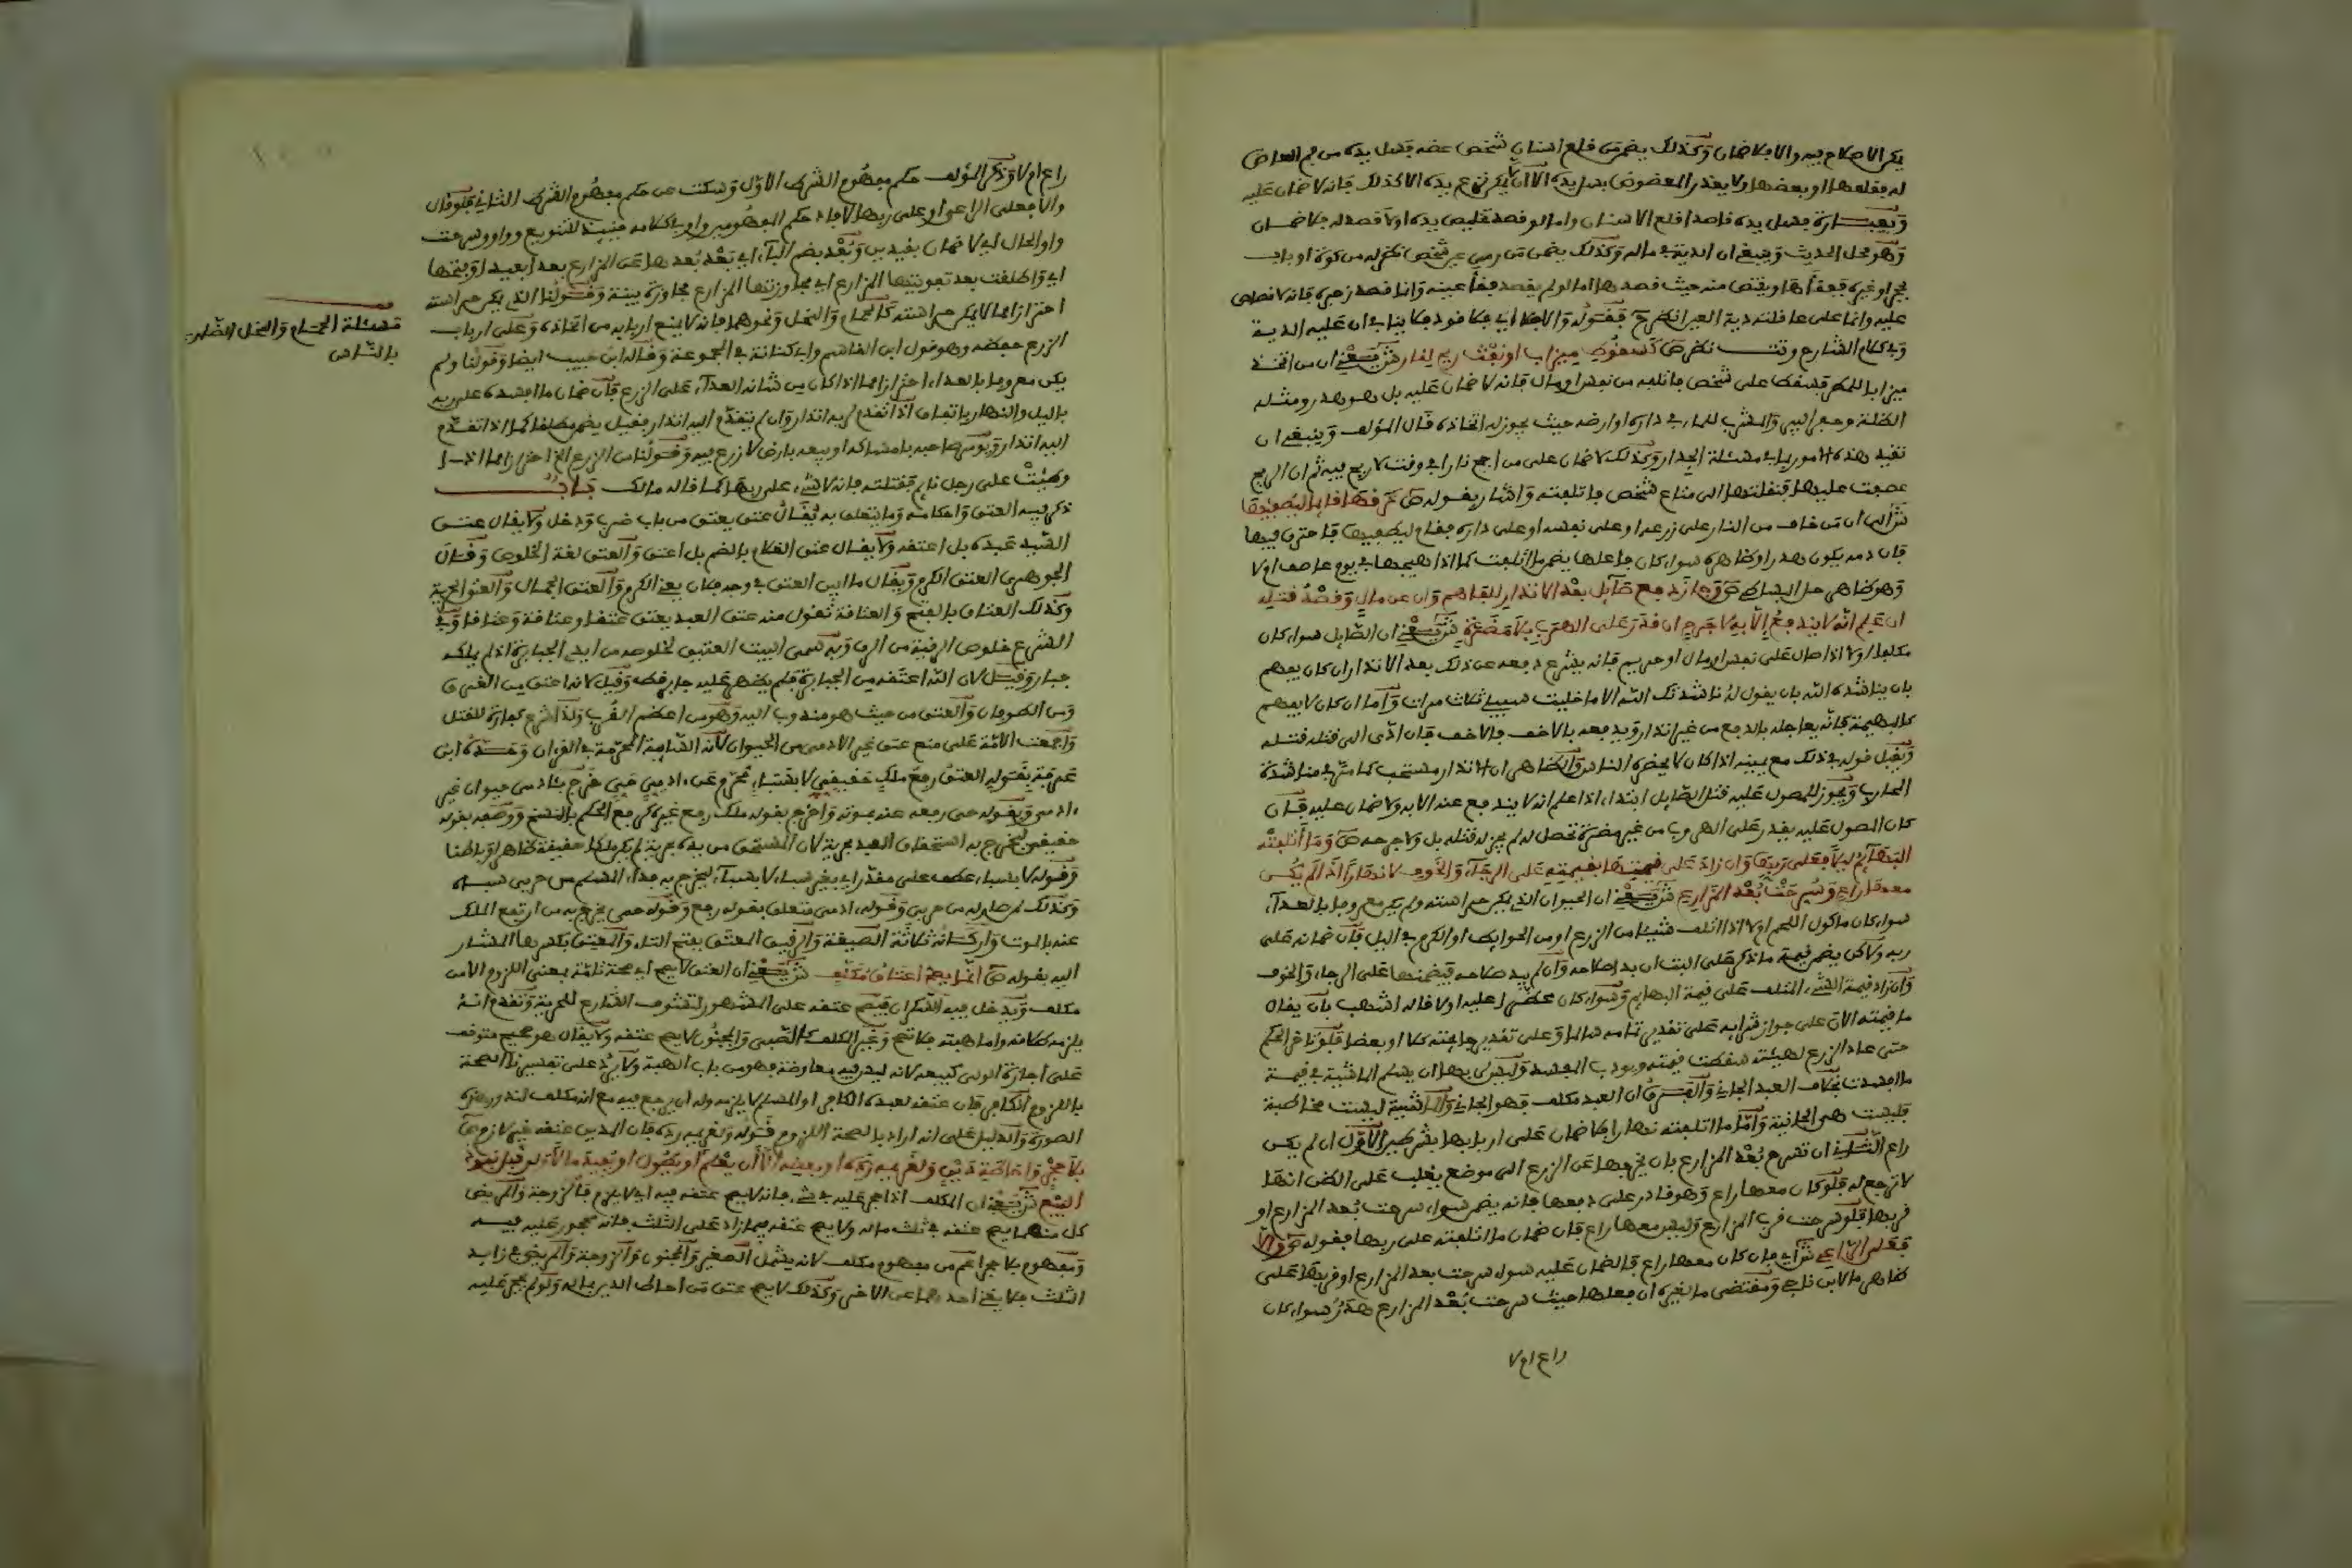 يكن الاصلاح فيه والا فلا ضمان وكذلك يضمن من قلع اسنان شخص عضه فسل يده من فم العاض
له فقلعها او بعضها ولا يعذر المعضوض بسل يده الا ان لا يمكن نزع يده الا كذلك فانه لا ضمان عليه
وبعبارة فسل يده قاصدا قلع الاسنان واما لو قصد تخليص يده اولا قصد له فلا ضمان
وهو محل الحديث وينبغي ان الدية في ماله وكذلك يضمن من رمى عين شخص نظر له من كوة او باب
بحجر او غيره ففقأها ويقتص منه حيث قصدها اما لو لم يقصد فقأ عينه وانما قصد زجره فانه لا قصاص
عليه وانما على عاقلته دية العين انظر ح فقوله والا فلا اي فلا قود فلا ينافي ان عليه الدية
وفي كلام الشارح وتت نظر ص كسقوط ميزاب او بغت ريح لنار ش يعني ان من اتخذ
ميزابا للمطر فسقط على شخص فاتلفه من نفس او مال فانه لا ضمان عليه بل هو هدر ومثله
الظلة وحفر البير والسرب للماء في داره او ارضه حيث يجوز له اتخاذه قال المؤلف وينبغي ان
تقيد هذه الامور بما في مسئلة الجدار وكذلك لا ضمان على من اجج نارا في وقت لا ريح فيه ثم ان الريح
عصفت عليها فنقلتها الى متاع شخص فاتلفته واشار بقوله ص كحرقها قائما لطفيها
ش الى ان من خاف من النار على زرعه او على نفسه او على داره فقام ليطفيها فاحترق فيها
فان دمه يكون هدرا وظاهره سواء كان فاعلها يضمن ما اتلفت كما اذا هيجها في يوم عاصف اولا
وهو ظاهر حل البساطي ص وجاز دفع صايل بعد الانذار للفاهم وان عن مال وقصد قتله
ان علم انه لا يندفع الا به لا جرح ان قدر على الهرب بلا مضرة ش يعني ان الصايل سواء كان
مكلفا او لا اذا صال على نفس او مال او حريم فانه يشرع دفعه عن ذلك بعد الانذار ان كان يفهم
بان يناشده الله بان يقول له ناشدتك الله الا ما خليت سبيلي ثلاث مرات واما ان كان لا يفهم
كالبهيمة فانه يعاجله بالدفع من غير انذار ويدفعه بالاخف فالاخف فان ادى الى قتله قتله
ويقبل قوله في ذلك مع يمينه اذا كان لا يحضره الناس والظاهر ان الانذار مستحب كما مر في مناشدة
المحارب ويجوز للمصول عليه قتل الصايل ابتداء اذا علم انه لا يندفع عنه الا به ولا ضمان عليه فان
كان المصول عليه يقدر على الهروب من غير مضرة تحصل له لم يجز له قتله بل ولا جرحه ص وما اتلفته
البهائم ليلا فعلى ربها وان زاد على قيمتها بقيمته على الرجاء والخوف لا نهارا اذا لم يكن
معها راع وسرحت بعد المزارع ش يعني ان الحيوان الذي يمكن حراسته ولم يكن معروفا بالعداء
سواء كان ماكول اللحم اولا اذا اتلف شيئا من الزرع او من الحوايط او الكرم في الليل فان ضمانه على
ربه ولا كن يضمن قيمة ما ذكر على البت ان بدا صلاحه وان لم يبد صلاحه فيضمنها على الرجاء والخوف
وان زاد قيمة الشيء المتلف على قيمة البهايم وسواء كان محضرا عليه اولا قاله اشهب بان يقال
ما قيمته الان على جواز شرايه على تقدير تمامه سالما وعلى تقدير جايحته كلا او بعضا فلو تاخر الحكم
حتى عاد الزرع لهيئته سقطت قيمته ويودب المفسد وليس لربها ان يسلم الماشية في قيمة
ما افسدت بخلاف العبد الجاني والفرق ان العبد مكلف فهو الجاني والماشية ليست مخاطبة
فليست هي الجانية واما ما اتلفته نهارا فلا ضمان على اربابها بشرطين الاول ان لم يكن
راع الثاني ان تسرح بعد المزارع بان يخرجها عن الزرع الى موضع يغلب على الظن انها
لا ترجع له فلو كان معها راع وهو قادر على دفعها فانه يضمن سواء سرحت بعد المزارع او
قربها فلو سرحت قرب المزارع وليس معها راع فان ضمان ما اتلفته على ربها فقوله ص والا
فعلى الراعي ش اي فان كان معها راع فالضمان عليه سواء سرحت بعد المزارع او قربها على
ظاهر ما لابن ناجي ومقتضى ما لغيره ان فعلها حيث سرحت بعد المزارع هدر سواء كان
راع ام لا
راع ام لا وذكر المؤلف حكم مفهوم الشرط الاول وسكت عن حكم مفهوم الشرط الثاني فلو قال
والا فعلى الراعي او على ربها لافاد حكم المفهومين واو في كلامه حينئذ للتنويع وواو وسرحت
واو الحال اي لا ضمان بقيدين وبعد بضم الباء اي بعد بعدها عن المزارع بعدا بعيدا وبفتحها
اي واطلقت بعد تفويتها المزارع اي مجاوزتها المزارع مجاوزة بينة وقولنا الذي يمكن حراسته
احترازا مما لا يمكن حراسته كالحمام والنحل ونحوهما فانه لا يمنع اربابه من اتخاذه وعلى ارباب
الزرع حفظه وهو قول ابن القاسم وابن كنانة في المجموعة وقاله ابن حبيب ايضا وقولنا ولم
يكن معروفا بالعداء احترازا مما اذا كان من شانه العداء على الزرع فان ضمان ما افسده على ربه
بالليل والنهار باتفاق اذا تقدم لربه انذار وان لم يتقدم اليه انذار فقيل يضمن مطلقا كما اذا تقدم
اليه انذار ويومر صاحبه بامساكه او بيعه بارض لا زرع فيه وقولنا من الزرع الخ احترازا مما اذا
وطئت على رجل نايم فقتلته فانه لا شيء على ربها كما قاله مالك باب
ذكر فيه العتق واحكامه وما يتعلق به يقال عتق يعتق من باب ضرب ودخل ولا يقال عتق
السيد عبده بل اعتقه ولا يقال عتق الغلام بالضم بل اعتق والعتق لغة الخلوص وقال
الجوهري العتق الكرم ويقال ما ابين العتق في وجه فلان يعني الكرم والعتق الجمال والعتق الحرية
وكذلك العتاق بالفتح والعتاقة تقول منه عتق العبد يعتق عتقا وعتاقة وعتاقا وفي
الشرع خلوص الرقبة من الرق وبه سمي البيت العتيق لخلوصه من ايدي الجبابرة اذ لم يملكه
جبار وقيل لان الله اعتقه من الجبابرة فلم يظهر عليه جبار قط وقيل لانه اعتق من الغرق
زمن الطوفان والعتق من حيث هو مندوب اليه وهو من اعظم القرب ولذا شرع كفارة للقتل
واجمعت الامة على منع عتق غير الادمي من الحيوان لانه السايبة المحرمة في القران وحده ابن
عرفة بقوله العتق رفع ملك حقيقي لا بسباء محرم عن ادمي حي خرج بادمي حيوان غير
ادمي وبقوله حي رفعه عنه بموته واخرج بقوله ملك رفع غيره كرفع الحكم بالنسخ ووصفه بقوله
حقيقي ليخرج به استحقاق العبد بحرية لان المستحق من يده بحرية لم يكن ملكا حقيقة ظاهرا وباطنا
وقوله لا بسباء عطف على مقدر اي بغير سباء لا بسباء ليخرج به فداء المسلم من حربي سباه
وكذلك لمن صار له من حربي وقوله ادمي متعلق بقوله رفع وقوله حي يخرج به من ارتفع الملك
عنه بالموت واركانه ثلاثة الصيغة والرقيق المعتق بفتح التاء والمعتق بكسرها المشار
اليه بقوله ص انما يصح اعتاق مكلف ش يعني ان العتق لا يصح اي صحة تامة بمعنى اللزوم الا من
مكلف ويدخل فيه السكران فيصح عتقه على المشهور لتشوف الشارع للحرية وتقدم انه
يلزمه طلاقه واما هبته فلا تصح وغير المكلف كالصبي والمجنون لا يصح عتقه ولا يقال هو صحيح متوقف
على اجازة الولي كبيعه لانه ليس فيه معاوضة فهو من باب الهبة ولا يرد على تفسيرنا الصحة
باللزوم الكافر فان عتقه لعبده الكافر او المسلم لا يلزمه وله ان يرجع فيه مع انه مكلف لندور هذه
الصورة والدليل على انه اراد بالصحة اللزوم قوله ولغريمه رده فان المدين عتقه غير لازم ص
بلا حجر واحاطة دين ولغريمه رده او بعضه الا ان يعلم او يطول او يفيد مالا ولو قبل نفوذ
البيع ش يعني ان المكلف اذا حجر عليه في شيء فانه لا يصح عتقه فيه اي لا يلزم فالزوجة والمريض
كل منهما يصح عتقه في ثلث ماله ولا يصح عتقه فيما زاد على الثلث فانه محجور عليه فيه
ومفهوم بلا حجر اعم من مفهوم مكلف لانه يشمل الصغير والمجنون والزوجة والمريض في زايد
الثلث فلا يغني احدهما عن الاخر وكذلك لا يصح عتق من احاط الدين بماله ولو لم يحجر عليه
قف مسئلة الحمام والنحل الضارين
بالناس